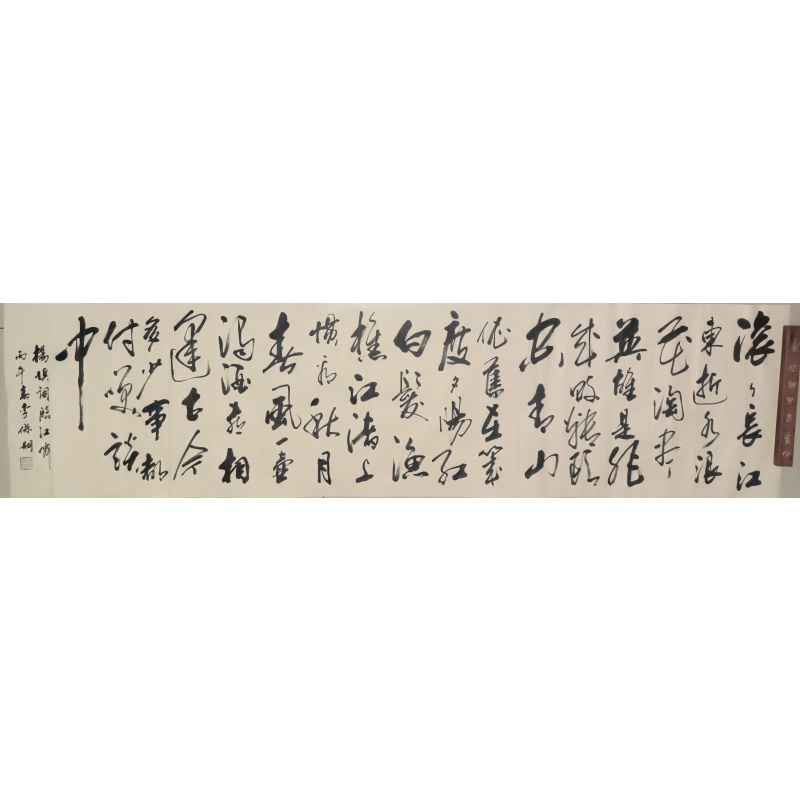 滚々長江
東逝水浪
花淘尽
英雄是非
成敗轉頭
空青山
依舊在幾
度夕陽紅
白髮漁
樵江渚上
慣看秋月
春風一壺
濁酒喜相
逢古今
多少事都
付笑談
中
楊慎詞臨江仙
丙午春